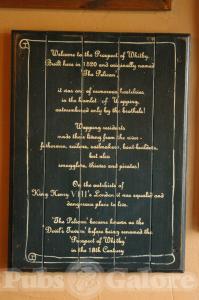 Welcome to the Prospect of Whitby.
Built here in 1520 and originally named
'The Pelican',
it was one of numerous hostelries
in the hamlet of Wapping,
outnumbered only by the brothels!
Wapping residents
made their living from the river -
fishermen, sailors, sailmakers, boat-builders,
but also
smugglers, thieves and pirates!
On the outskirts of
King Henry VIII's London it was squalid and
dangerous place to live.
'The Pelican' became known as the
Devil's Tavern' before being renamed the
'Prospect of Whitby'
in the 18th Century
Pubs Galore